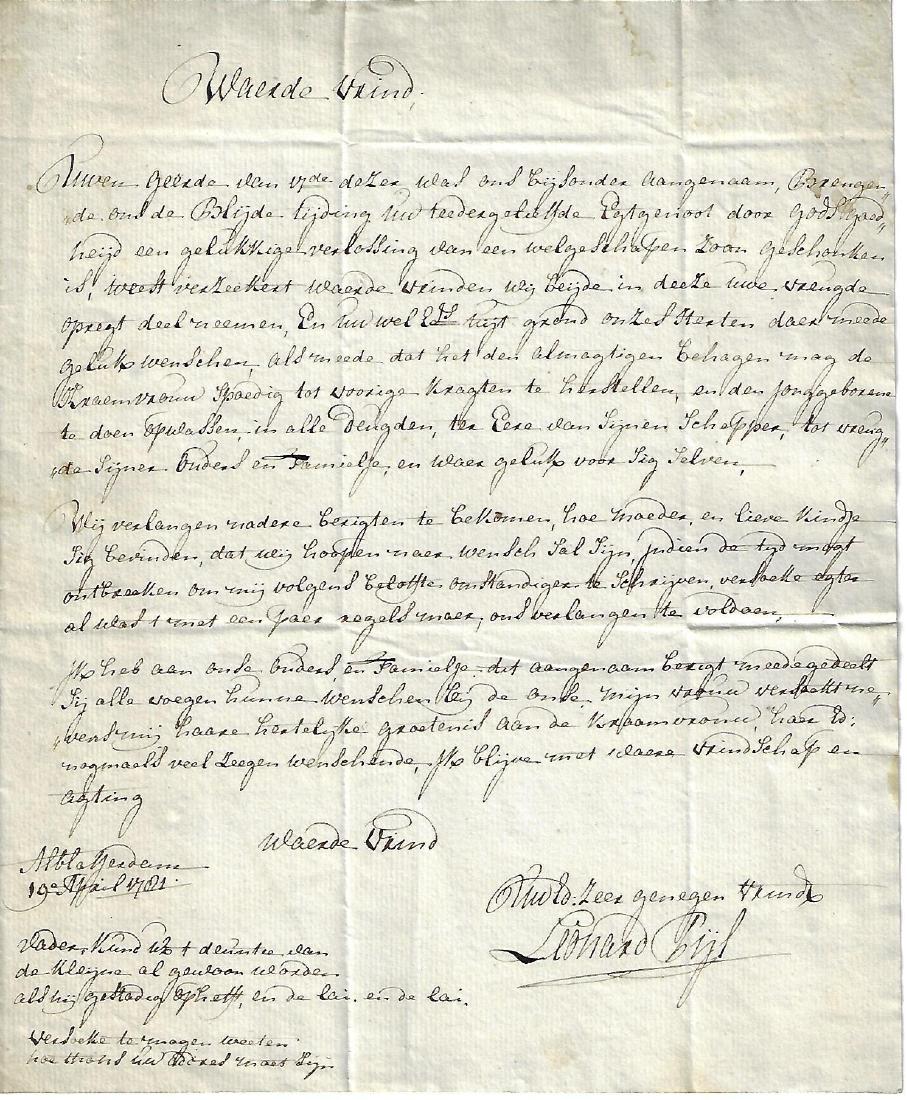 Waerde Vrind,
Uwen geerde van 17de dezer was ons bijsonder aangenaam, Brengen„
„de ons de Blijde tijding Uw teedergeliefde Egtgenoot door gods goed„
heijd een gelukkige verlossing van een welgeschapen Zoon geschonken
is, weest verzeekert Waerde vrinden wij beijde in deeze uwe vreugde
opregt deel neemen, En Uw wel Eds uijt grond onzes Herten daer meede
geluk wenschen als meede dat het den almagtigen behagen mag de
Kraemvrouw Spoedig tot voorige Kragten te herstellen, en den jonggeborene
te doen opwassen, in alle Deugden, ter Eere van Sijnen Schepper, tot vreug„
„de Sijner Ouders en Famielje, en waer geluk voor Sig Selven,
Wij verlangen nadere berigten te bekomen, hoe Moeder, en lieve Kindje
Sig bevinden, dat wij hoopen naer wensch Sal Sijn, Indien de tijd mogt
ontbreeken om mij volgens belofte omstandiger te Schrijven, versoeke egter
al was t met een paer regels maer, ons verlangen te voldoen,
Ik heb aan onse Ouders en Famielje dat aangenaam berigt meedegedeelt
Sij alle voegen hunne wenschen bij de onse, mijn vrouw versoekt ne„
„vens mij haare hertelijke groetenis aan de Kraamvrouw, haer Ed:
nogmaals veel Zeegen wenschende, Ik blijve met waere vrindschap en
agting
Waerde Vrind
Alblasserdam
19e April 1781.
UwEd. Zeer genegen Vrind
Leonard Pijl
Vader, Kund Uw t deuntje van
de Kleijne al gewoon worden
als hij gestadig opheft, en de lai. en de lai.
Versoeke te mogen weeten
hoe thans Uw adres moet Sijn